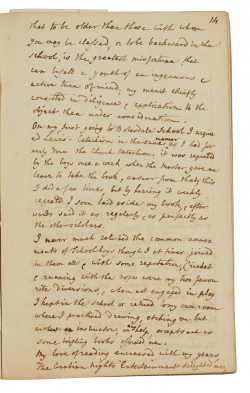 14
that to be older than those with whom
you may be classed, or to be backward in the
school, is the greatest misfortune that
can befall a youth of an ingenuous &
active turn of mind, my merit chiefly
consisted in diligence, & application to the
object then under consideration.
On my first going to Botesdale School I acquir
ed Lewis's Catechism in the same manner as I had for
merly done the Church Catechism; it was repeated
by the boys once a week when the master gave me
leave to take the book, and answer from that; this
I did a few times, but by hearing it weekly
repeated I soon laid aside my book, & after
wards said it as regularly, & as perfectly as
the other scholars.
I never much relished the common amuse
ments of School boys though I at times joined
in them all & with some reputation, Cricket
& running with the ropes were my two favou
rite diversions, when not engaged in play
I kept in the school or retired to my own room
where I practised drawing, etching &c but
without an instructor, or help, except such as
some trifling books afforded me.
My love of reading encreased with my years,
The Arabian Nights Entertainment delighted me,